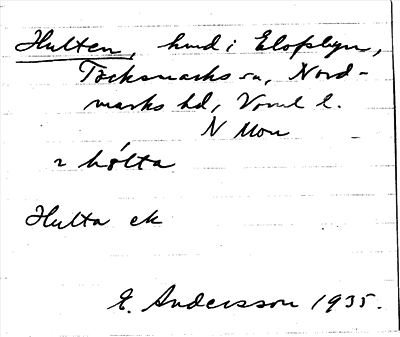 Hulten, hmd i Elofsbyn,
Töcksmarks sn, Nord-
marks hd, Vrml l.
N Mon
2 hølta
Hulta ek
E. Andersson 1935.